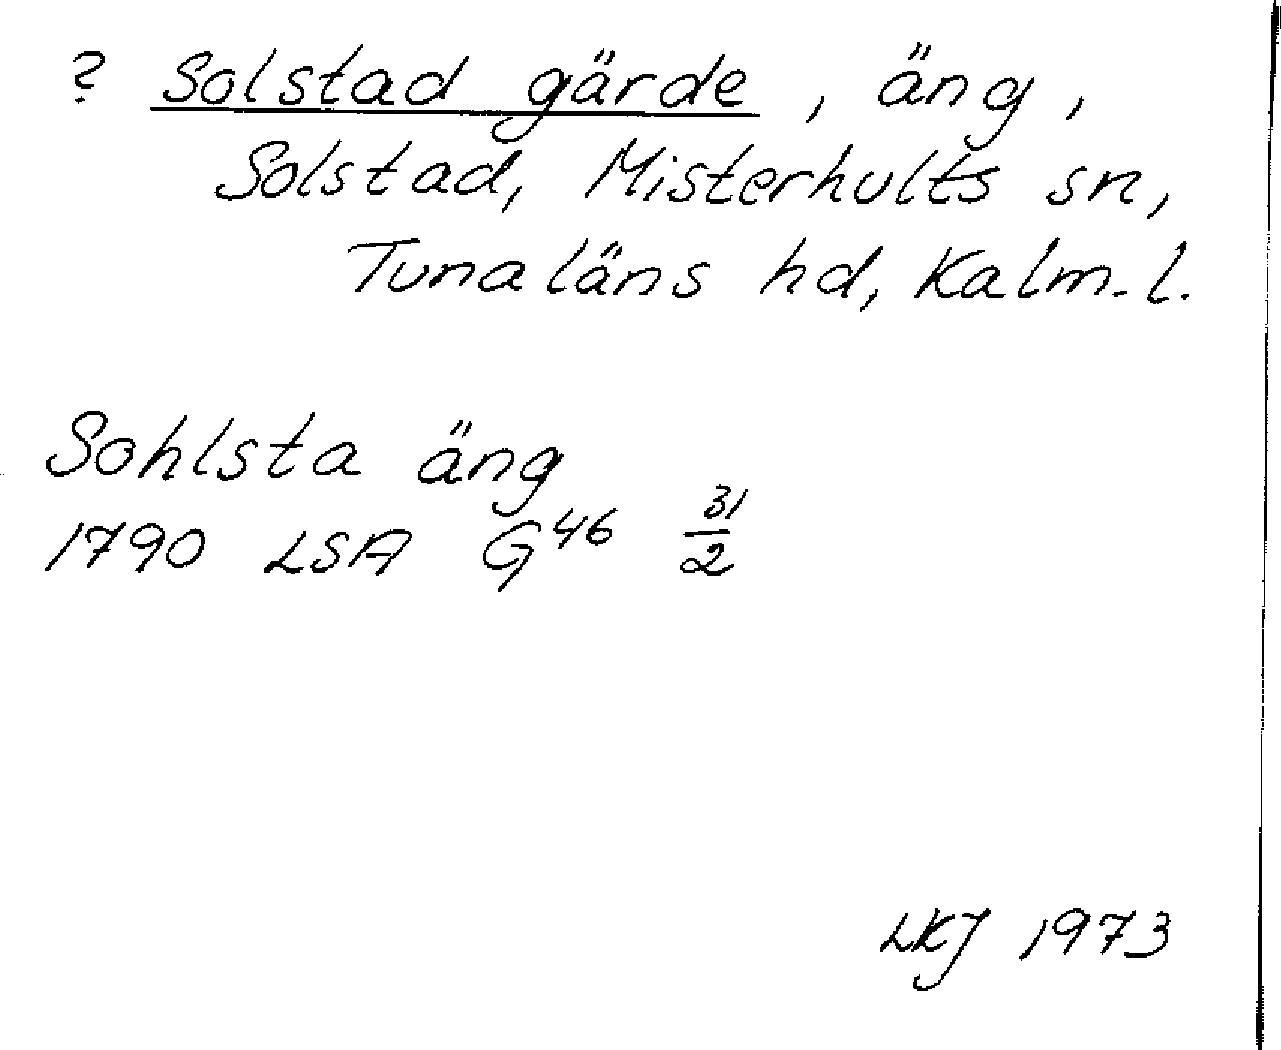 ? Solstad gärde, äng,
Solstad, Misterhults sn,
Tunaläns hd, Kalm. l.
Sohlsta äng
1790 LSA G46 31/2
LKJ 1973